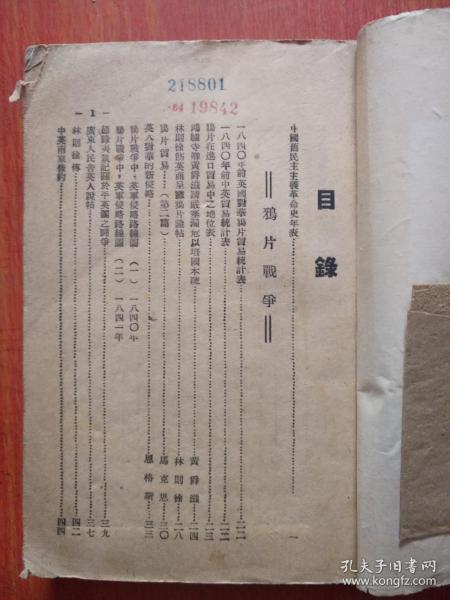 218801
64 19842
目錄
中國舊民主主義革命史年表……一
鴉片戰爭
一八四〇年前英國對華鴉片貿易統計表……二二
一八四〇年前中英貿易統計表……二二
鴉片在進口貿易中之地位表……二三
鴻臚寺卿黃爵滋請嚴塞漏卮以培國本疏……黃爵滋……二四
林則徐飭英商呈繳鴉片諭帖……林則徐……二八
鴉片貿易……(第二篇)……馬克思……三〇
英人對華的新侵略……恩格斯……三三
鴉片戰爭中,英軍侵略路線圖(一)一八四〇年
鴉片戰爭中,英軍侵略路線圖(二)一八四一年
節錄夷氛記關於平英團之鬪爭……三九
廣東人民告英人說帖……三七
林則徐傳……四二
中英南京條約……四四
— 1 —
孔夫子旧书网
book.kongfz.com